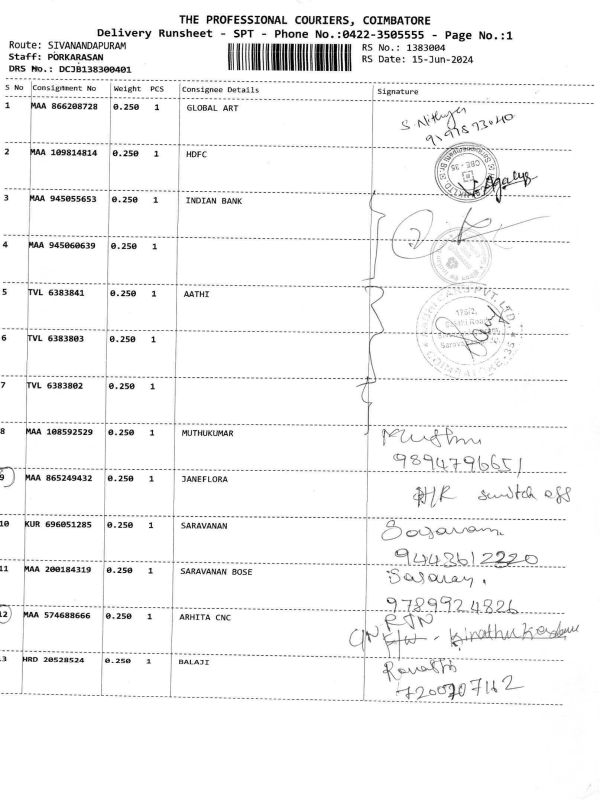 THE PROFESSIONAL COURIERS, COIMBATORE
Delivery Runsheet - SPT - Phone No.:0422-3505555 - Page No.:1
Route: SIVANANDAPURAM RS No.: 1383004
Staff: PORKARASAN RS Date: 15-Jun-2024
DRS No.: DCJB138300401
S No Consignment No Weight PCS Consignee Details Signature
1 MAA 866208728 0.250 1 GLOBAL ART
S. Nithya
2 MAA 109814814 0.250 1 HDFC
CBE - 35
3 MAA 945055653 0.250 1 INDIAN BANK
4 MAA 945060639 0.250 1
5 TVL 6383841 0.250 1 AATHI
PVT. LTD
6 TVL 6383803 0.250 1
7 TVL 6383802 0.250 1
8 MAA 108592529 0.250 1 MUTHUKUMAR
9894796651
9 MAA 865249432 0.250 1 JANEFLORA
switch off
10 KUR 696051285 0.250 1 SARAVANAN
9448612220
11 MAA 200184319 0.250 1 SARAVANAN BOSE
9789924826
12 MAA 574688666 0.250 1 ARHITA CNC
RTN
3 HRD 20528524 0.250 1 BALAJI
7200207162